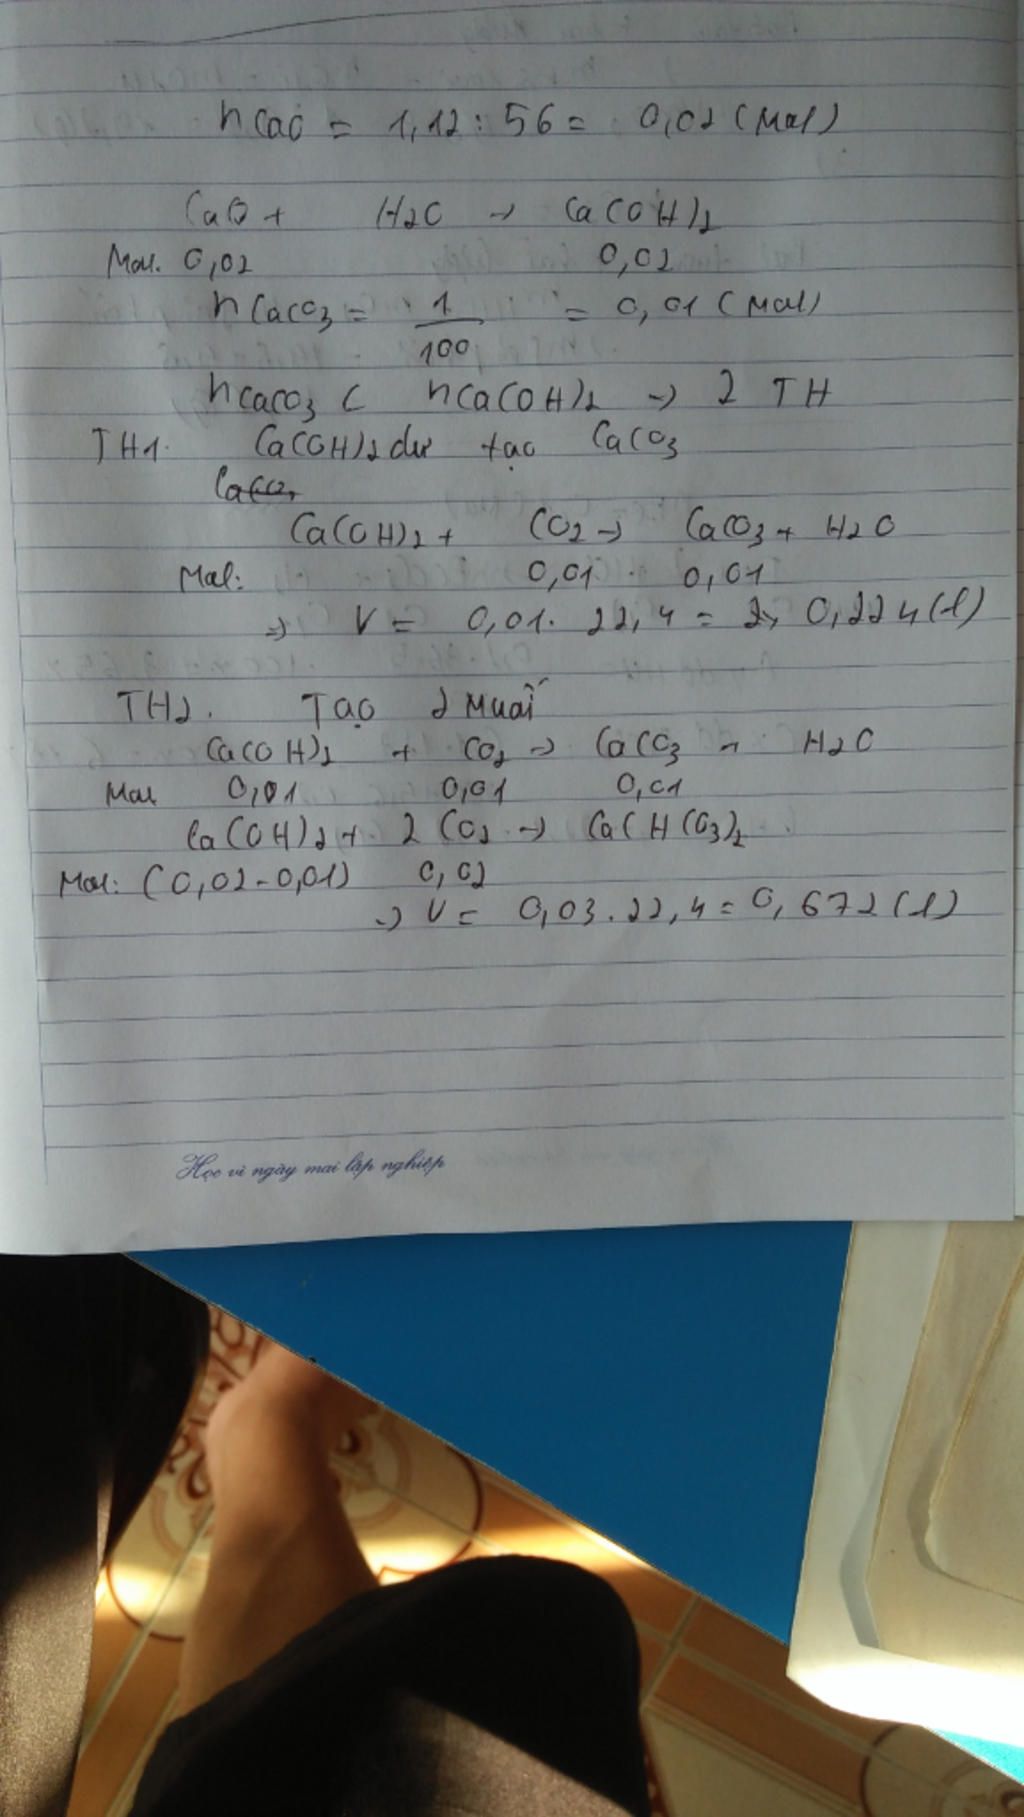 nCaO = 1,12 : 56 = 0,02 (Mol)
CaO + H2O → Ca(OH)2
Mol. 0,02 0,02
nCaCO3 = 1/100 = 0,01 (Mol)
nCaCO3 < nCa(OH)2 → 2 TH
TH1. Ca(OH)2 dư tạo CaCO3
Ca(OH)2 + CO2 → CaCO3 + H2O
Mol: 0,01 0,01
⇒ V = 0,01 . 22,4 = 0,224 (l)
TH2. Tạo 2 Muối
Ca(OH)2 + CO2 → CaCO3 + H2O
Mol 0,01 0,01 0,01
Ca(OH)2 + 2 CO2 → Ca(HCO3)2
Mol: (0,02-0,01) 0,02
→ V = 0,03 . 22,4 = 0,672 (l)
Học vì ngày mai lập nghiệp